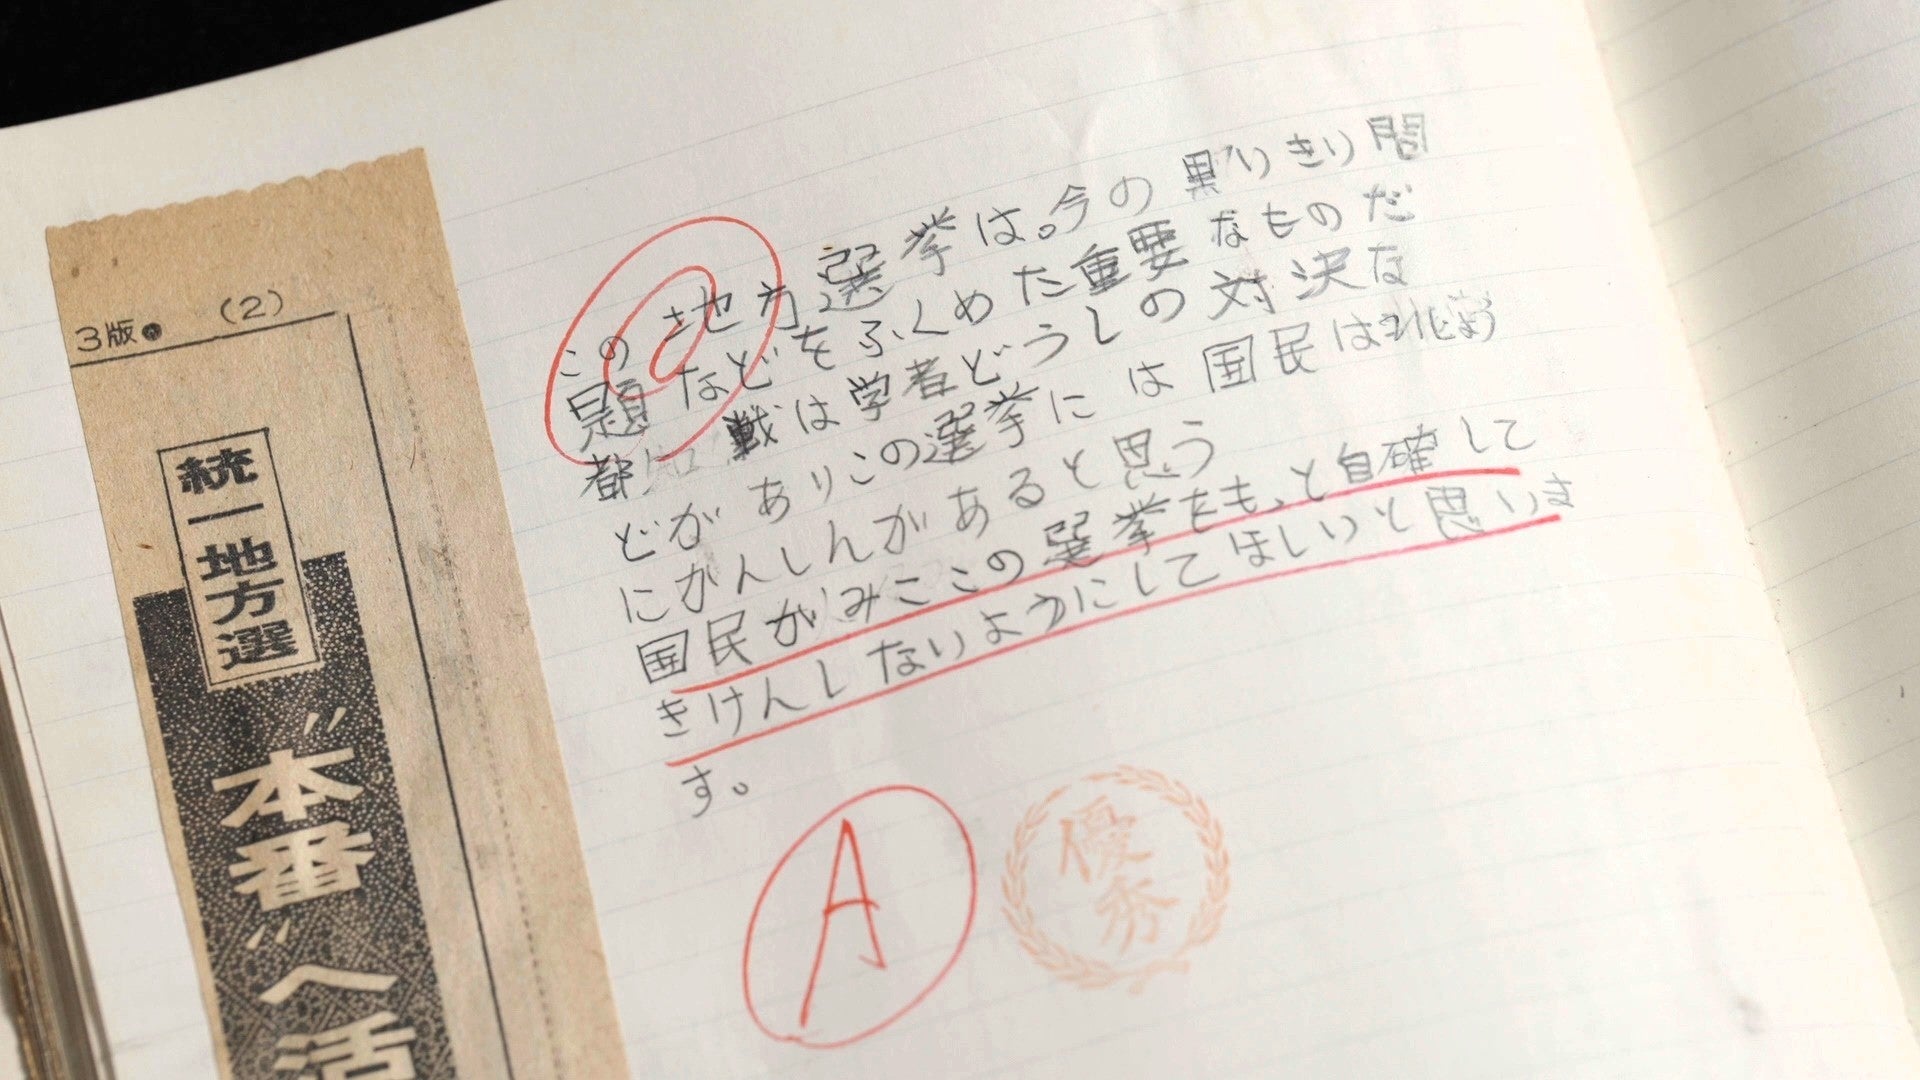 3版●
(2)
統一地方選
〝本番〟へ活
この地方選挙は。今の黒いきり問
題などをふくめた重要なものだ
都知戦は学者どうしの対決な
どがありこの選挙には国民は非じょう
にかんしんがあると思う
国民がみここの選挙をもっと自確して
きけんしないようにしてほしいと思いま
す。
A
優秀